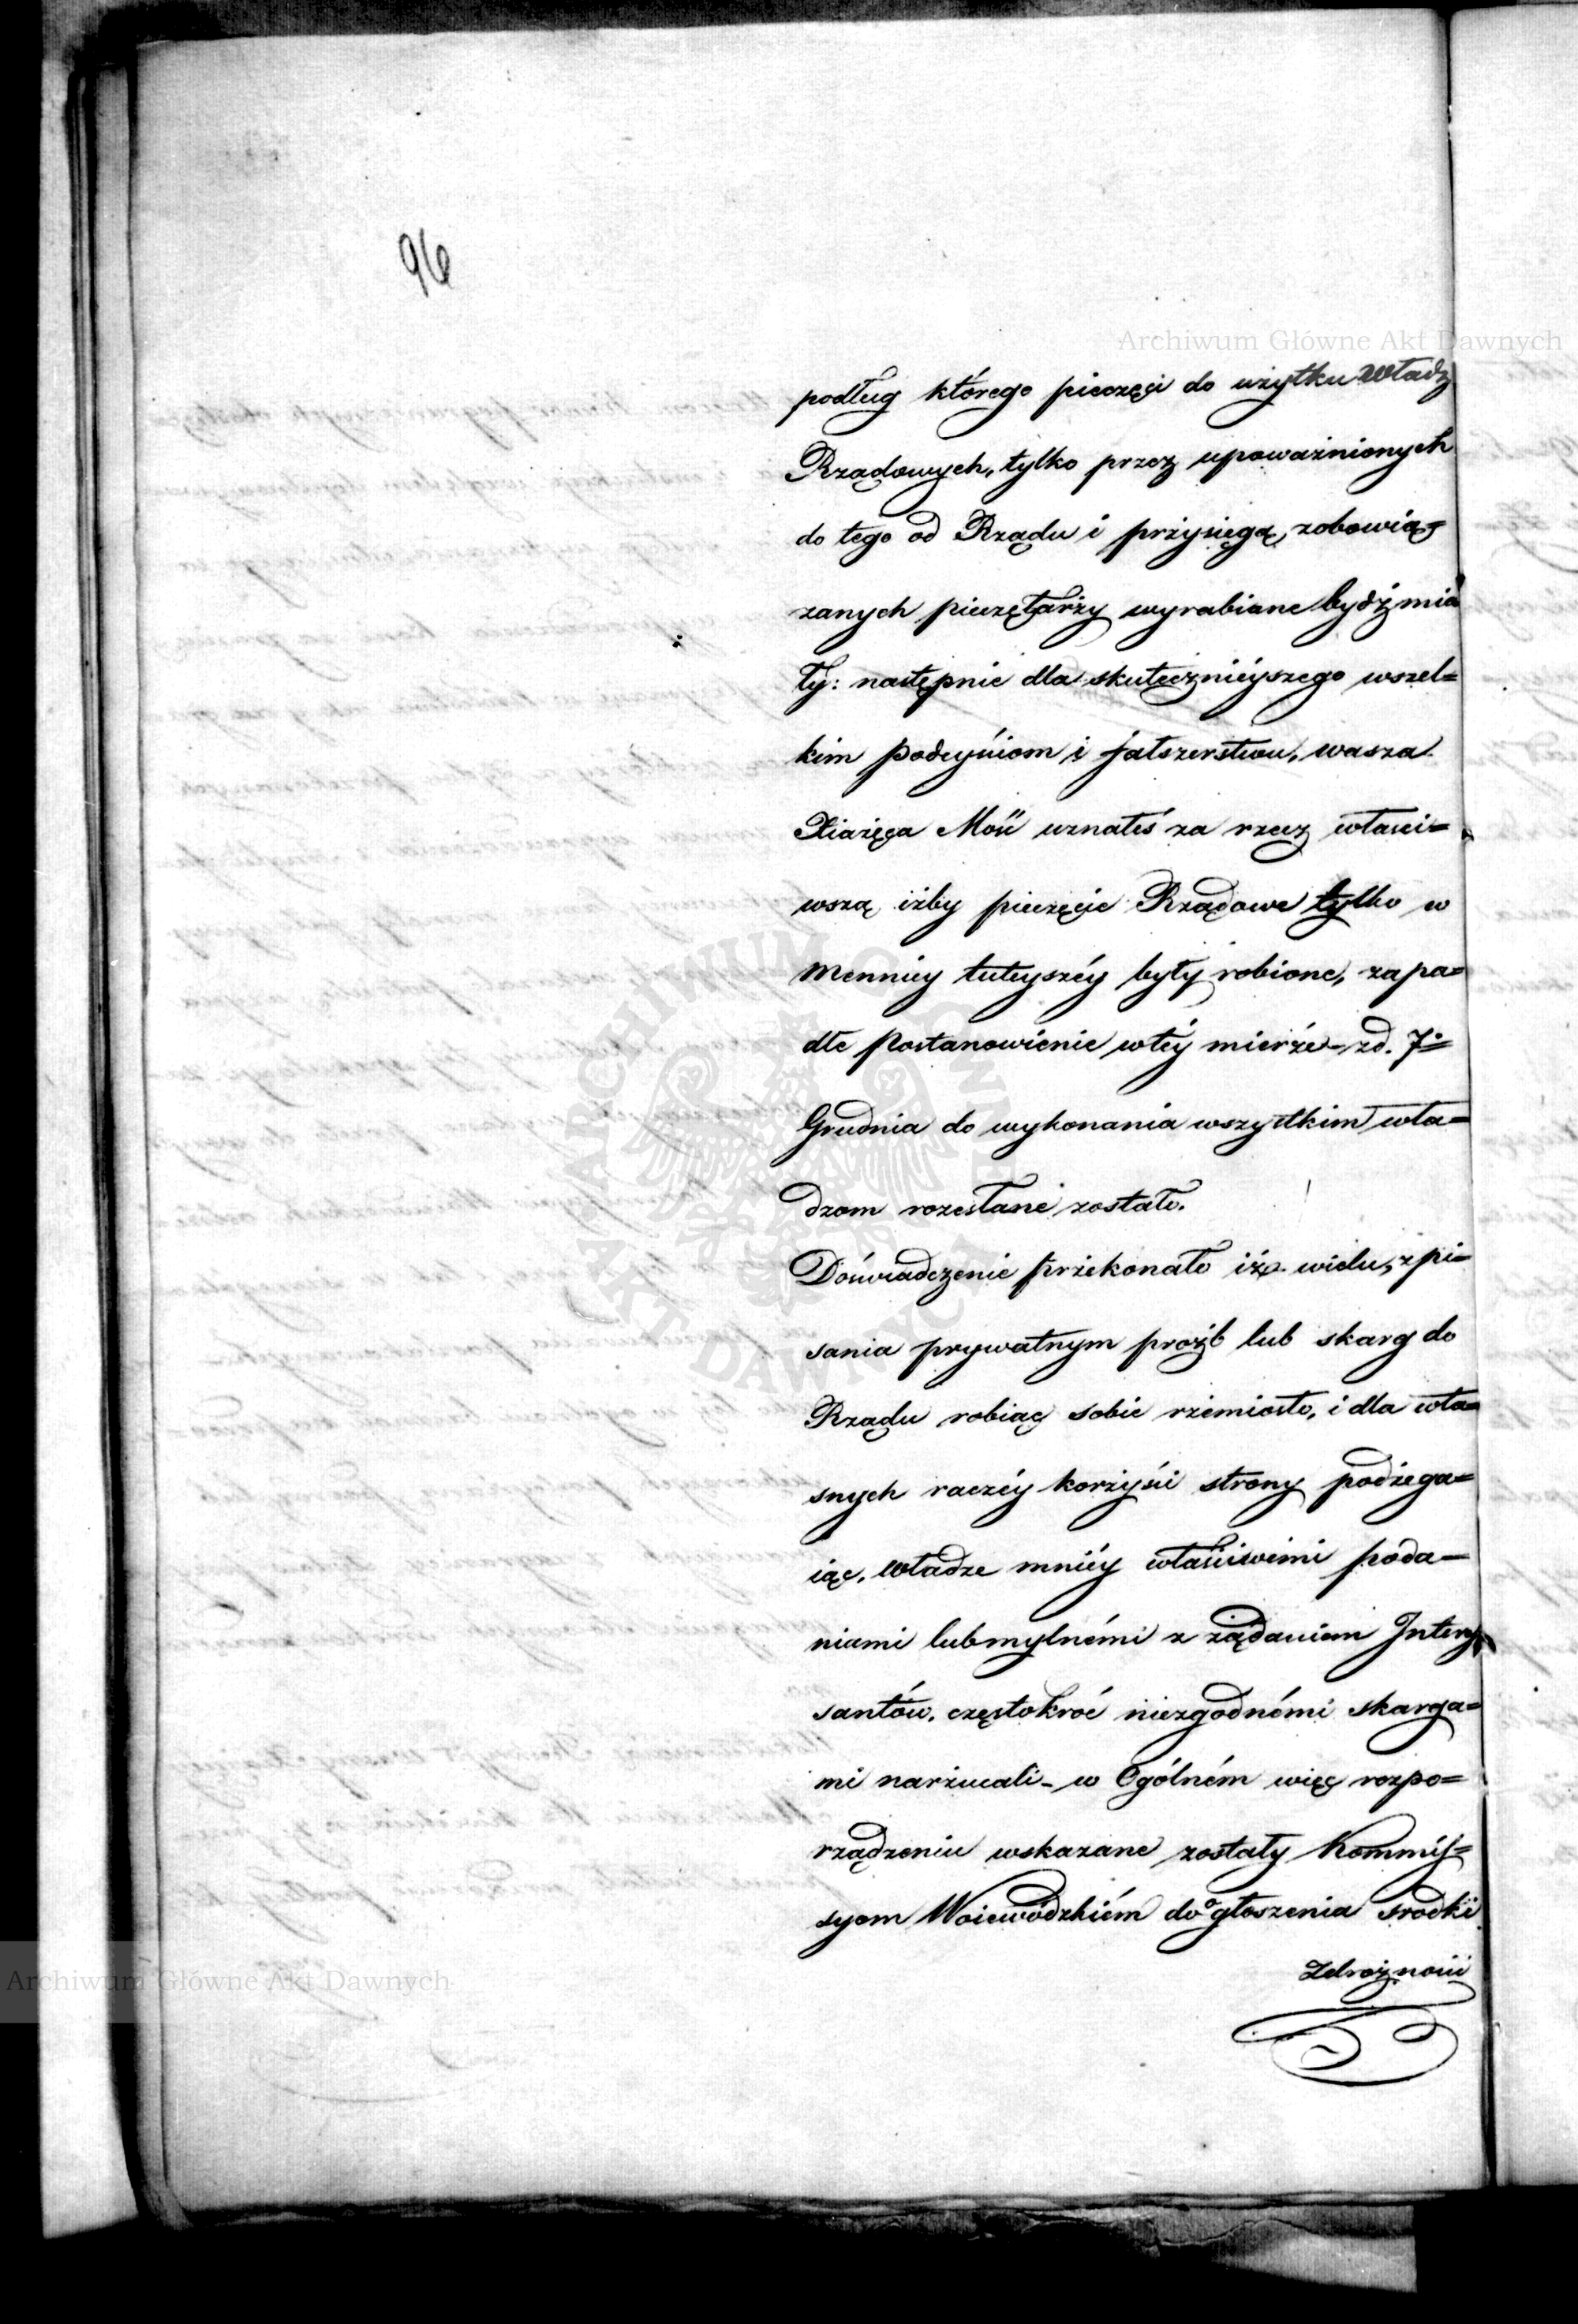 96
Archiwum Główne Akt Dawnych
podług którego pieczęci do użytku Władz
Rządowych, tylko przez upoważnionych
do tego od Rządu i przysięgą, zobowią=
zanych pieczętarzy wyrabiane bydź mia
ły: następnie dla skutecznieyszego wszel=
kim podeyściom i fałszerstwu, wasza
Xiążęca Mość uznałeś za rzecz właści=
wszą iżby pieczęcie Rządowe tylko w
Mennicy tuteyszéy były robione, zapa=
dłe Postanowienie w téy mierze z d. 7º
Grudnia do wykonania wszystkim wła=
dzom rozesłane zostało.
Doświadczenie przekonało iż wielu, z pi=
sania prywatnym próźb lub skarg do
Rządu robiąc sobie rzemiosło, i dla wła=
snych raczéy korzyści strony podżega=
iąc, Władze mniéy właściwemi poda=
niami lub mylnémi z żądaniem Intere
santów, częstokroć niezgodnémi skarga=
mi narzucali – w Ogólném więc rozpo=
rządzeniu wskazane zostały Kommis=
syom Woiewódzkiém do ogłoszenia srodki
Zdrożności
ARCHIWUM GŁÓWNE AKT DAWNYCH
Archiwum Główne Akt Dawnych